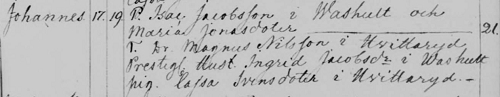 Johannes 17. 19. P. Isac Jacobsson i Washult och
Maria Jonasdoter 21.
T. Dr. Magnus Nilsson i Hvittaryd
Prestg. Hust. Ingrid Jacobsdr i Washult
pig. Cajsa Svinsdoter i Hvittaryd.